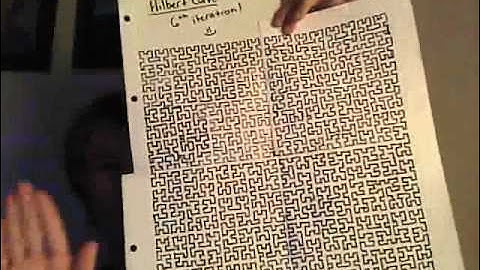 Hilbert Curve
(6th iteration)